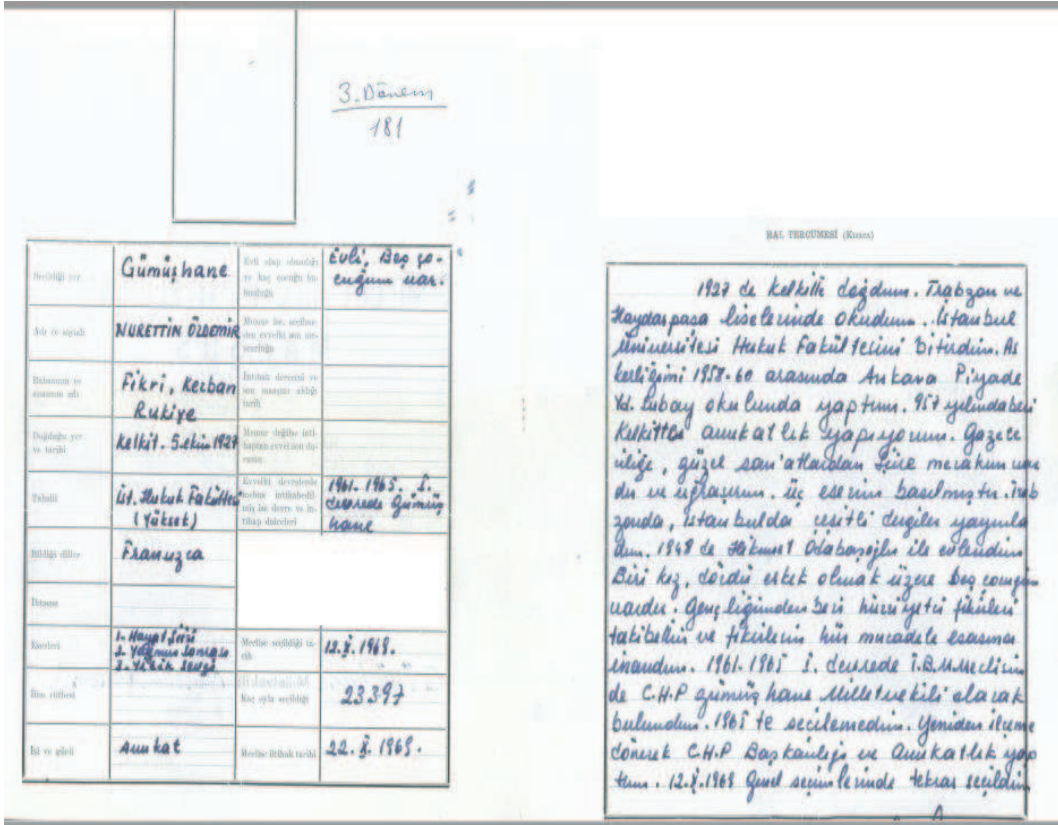 3. Dönem
181
Seçildiği yer
Gümüşhane
Evli olup olmadığı
ve kaç çocuğu bu-
lunduğu
Evli, Beş ço-
cuğum var.
Adı ve soyadı
NURETTİN ÖZDEMİR
Memur ise, seçilme-
den evvelki son me-
muriyeti
Babasının ve
anasının adı
Fikri, Kezban
Rukiye
İntihab devresini ve
son maaşını aldığı
tarih
Doğduğu yer
ve tarihi
Kelkit. 5.ekim 1927
Memur değilse inti-
haptan evvel son du-
rumu
Tahsili
İst. Hukuk Fakültesi
(Yüksek)
Evvelki devrelerde
mebus intihabedil-
miş ise devre ve in-
tihap daireleri
1961-1965. I.
devrede Gümüş
hane
Bildiği diller
Fransızca
İhtisası
Eserleri
1- Hayat Şiiri
2. Yağmur Sonrası
3. Yitik Sevgi
Meclise seçildiği ta-
rih
12.X.1969.
İlim rütbesi
Kaç oyla seçildiği
23397
İşi ve gücü
Avukat
Meclise iltihak tarihi
22.X.1969.
HAL TERCÜMESİ (Kısaca)
1927 de Kelkitte doğdum. Trabzon ve
Haydarpaşa liselerinde okudum. İstanbul
Üniversitesi Hukuk Fakültesini bitirdim. As
kerliğimi 1958-60 arasında Ankara Piyade
Yd. Subay okulunda yaptım. 957 yılındaberi
Kelkitte avukatlık yapıyorum. Gazete
ciliğe, güzel san'atlardan şiire merakım var
dır ve uğraşırım. Üç eserim basılmıştır. Trab
zonda, İstanbulda çeşitli dergiler yayınla
dım. 1948 de Hikmet Odabaşoğlu ile evlendim
Biri kız, dördü erkek olmak üzere beş çocuğum
vardır. Gençliğimden beri hürriyetçi fikirleri
takibettim ve fikirlerin hür mücadele esasına
inandım. 1961-1965 I. devrede T.B.M.Meclisin
de C.H.P Gümüşhane Milletvekili olarak
bulundum. 1965 te seçilemedim. Yeniden ilçeme
dönerek C.H.P Başkanlığı ve Avukatlık yap
tım. 12.X.1969 genel seçimlerinde tekrar seçildim